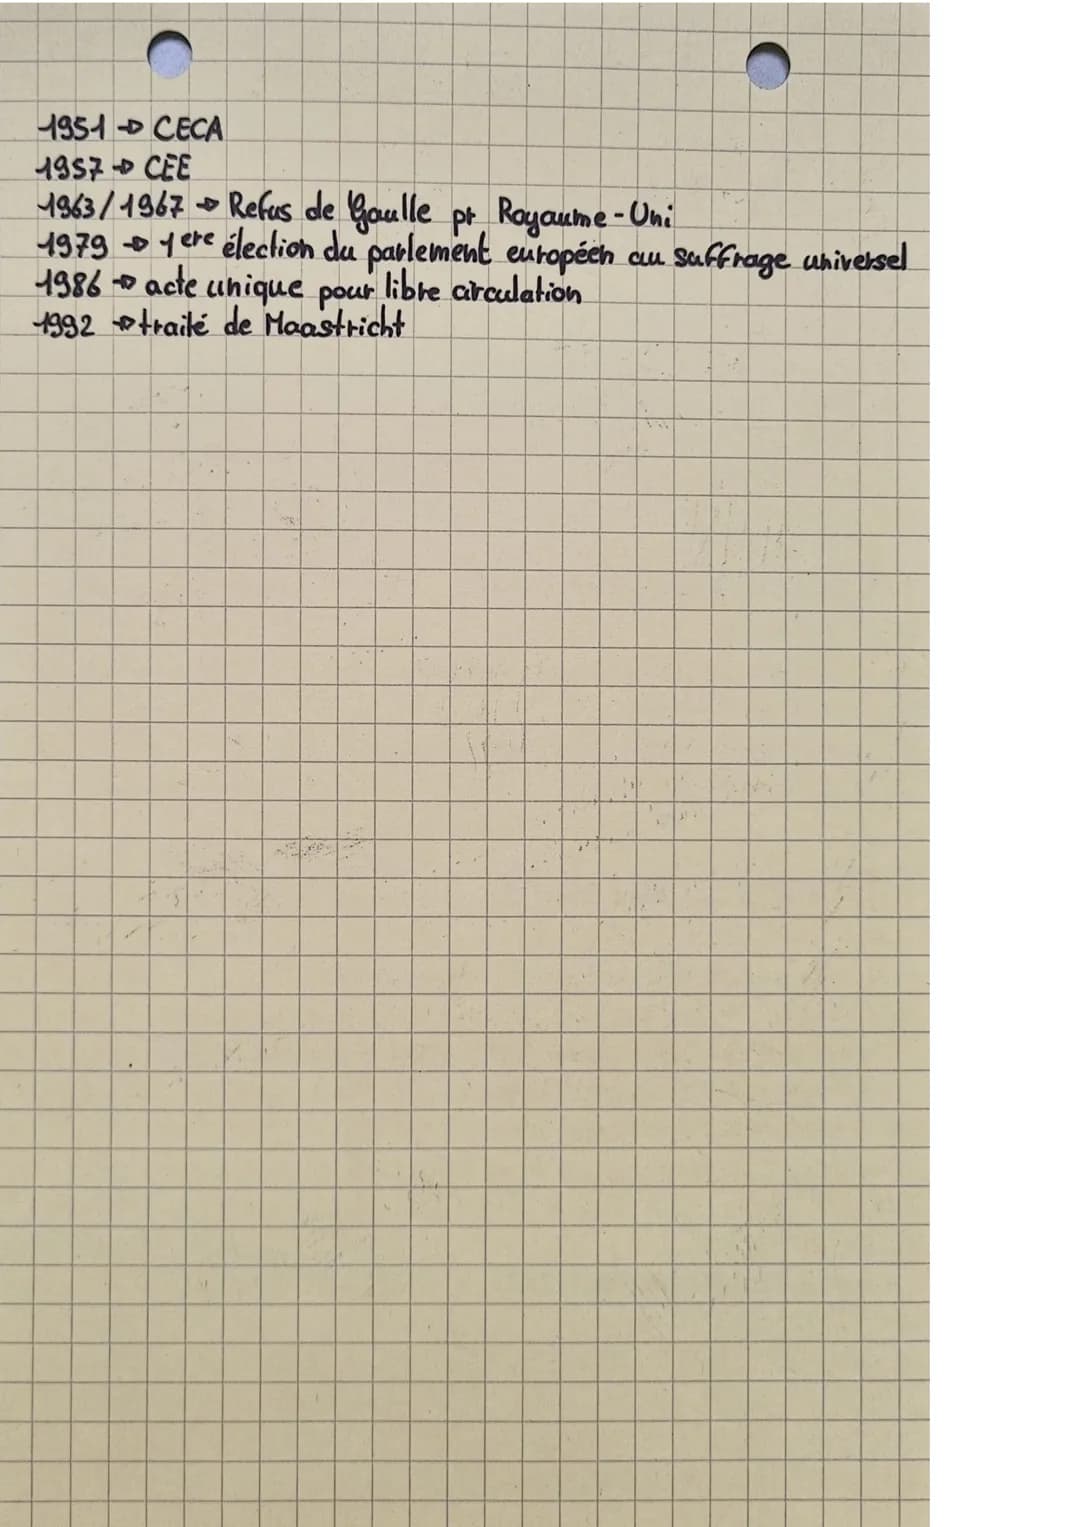 1951 → CECA
1957 → CEE
1963/1967 → Refus de Gaulle pr Royaume-Uni
1979 → 1ere élection du parlement européen au suffrage universel
1986 → acte unique pour libre circulation
1992 → traité de Maastricht